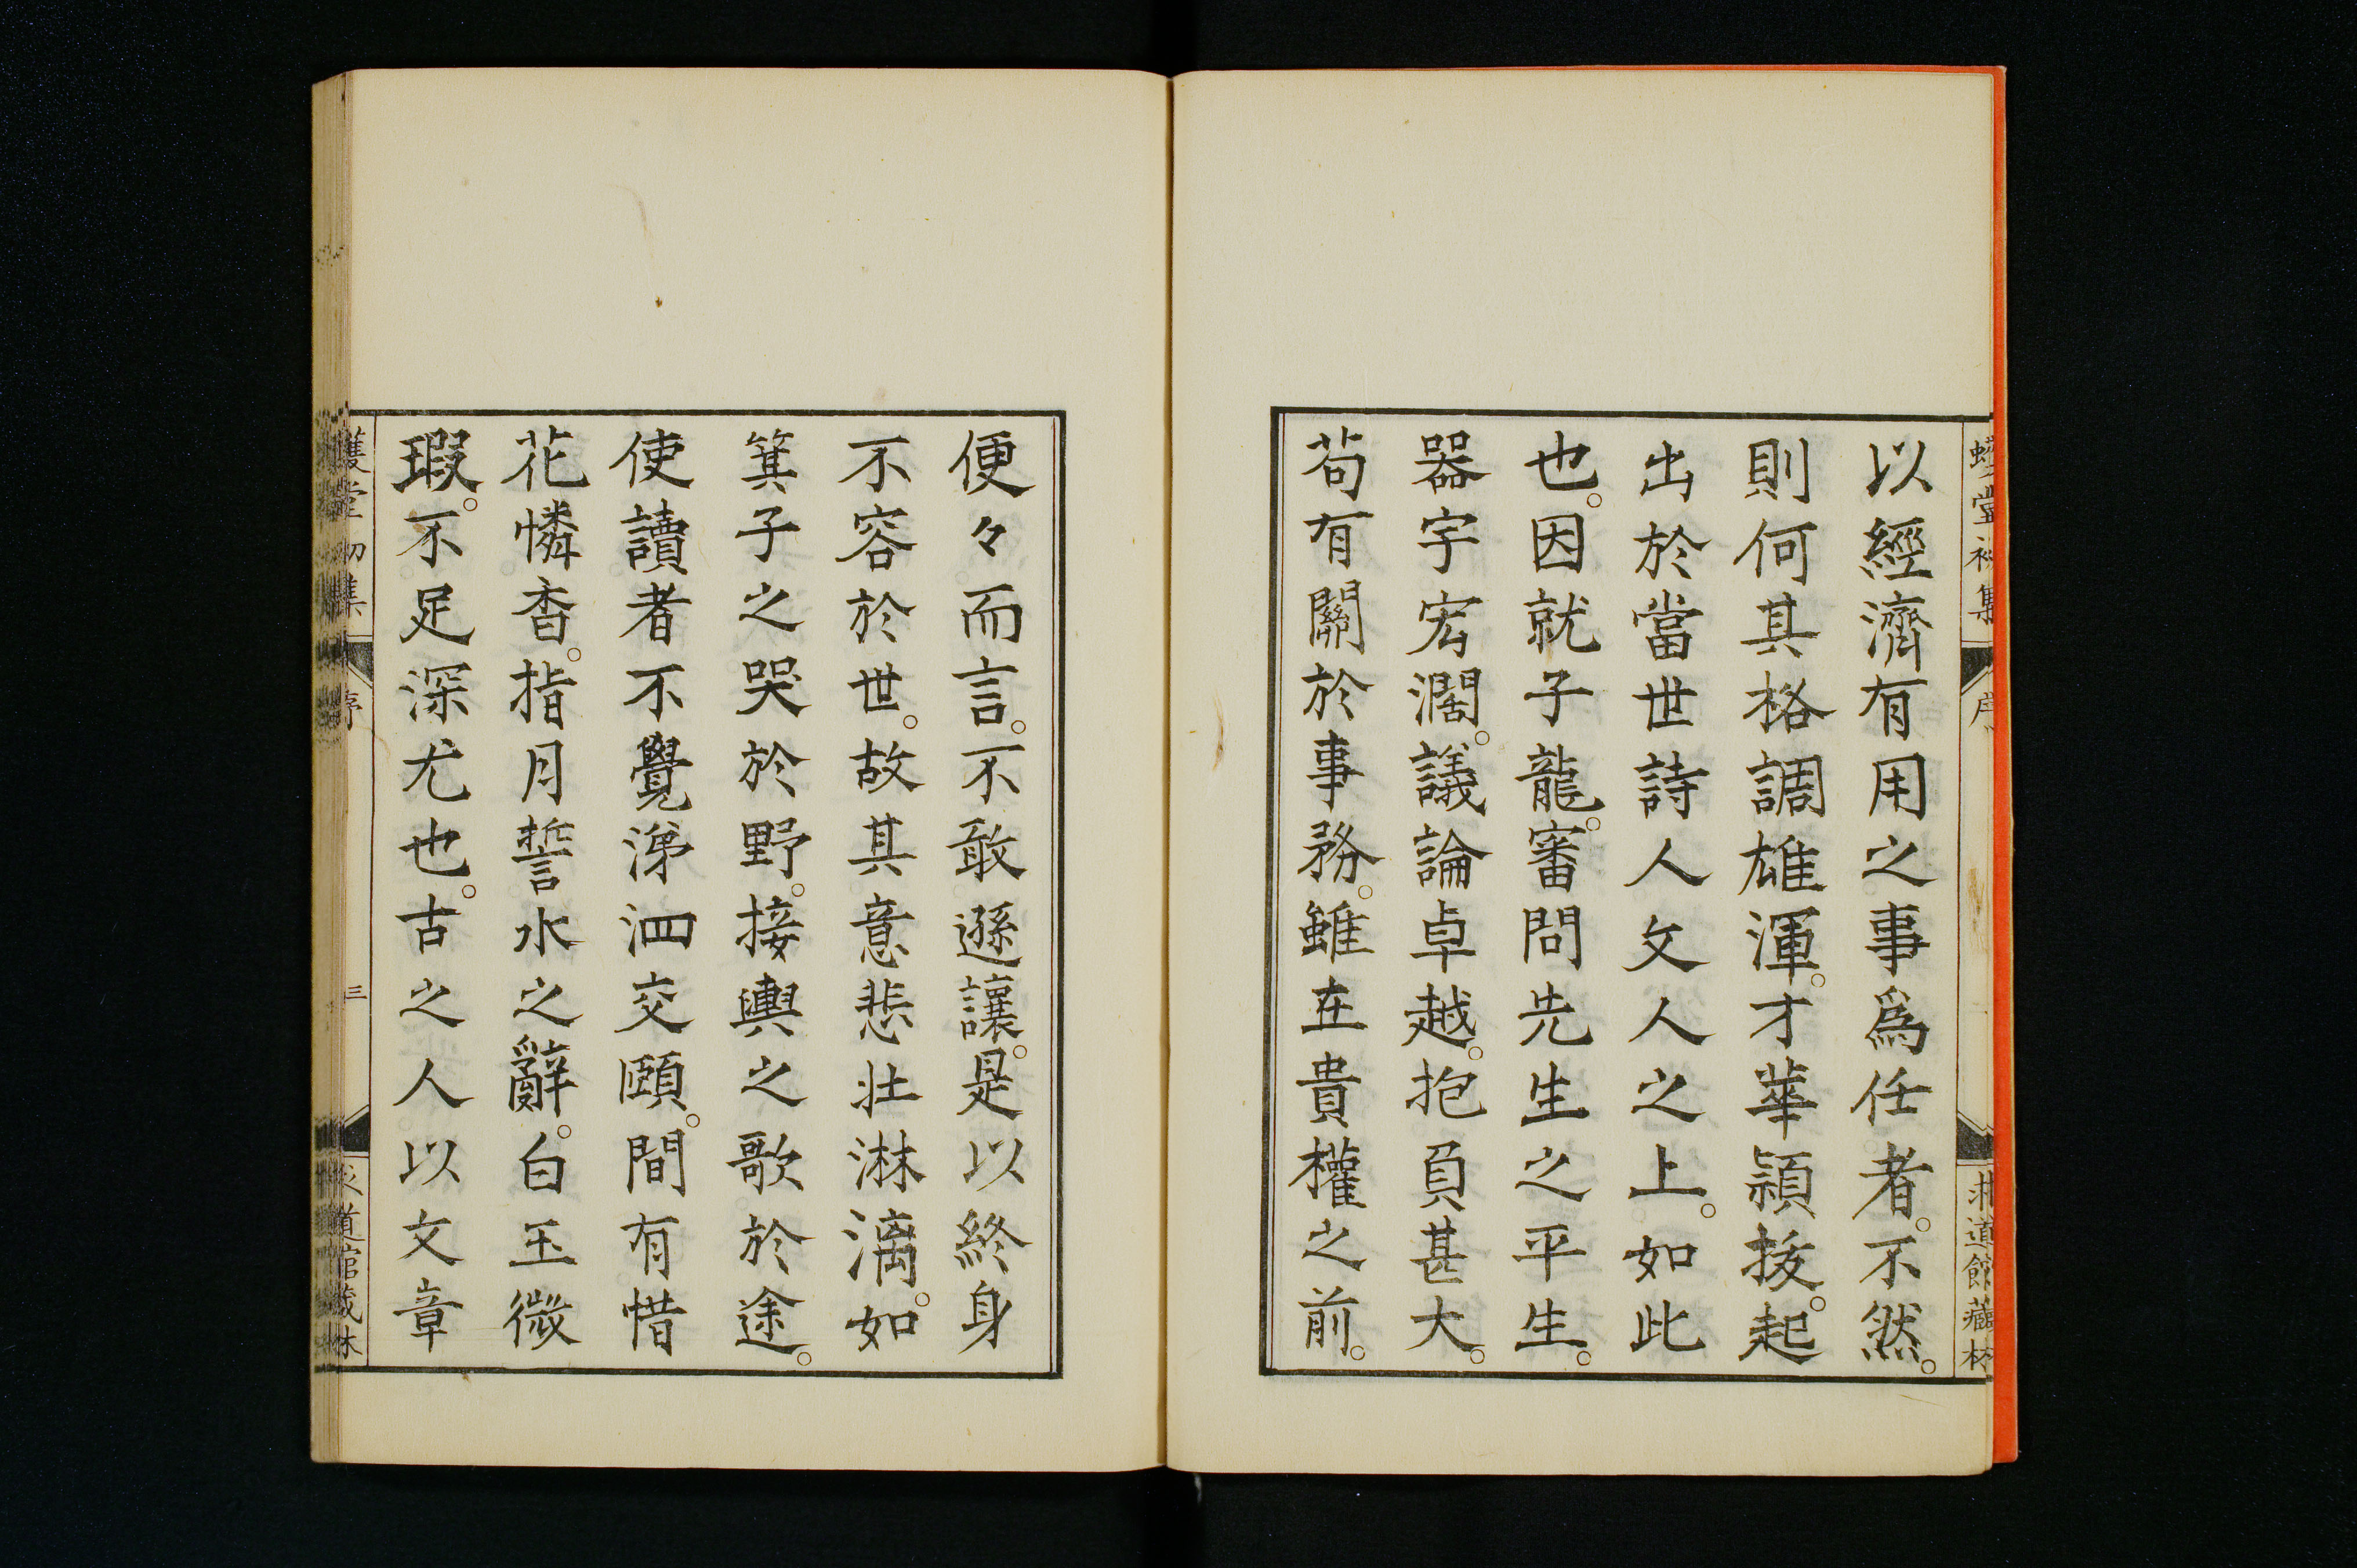 以經濟有用之事爲任者。不然。
則何其格調雄渾。才華穎拔。起
出於當世詩人文人之上。如此
也。因就子龍。審問先生之平生。
器宇宏濶。議論卓越。抱負甚大。
苟有關於事務。雖在貴權之前。
便々而言。不敢遜讓。是以終身
不容於世。故其意悲壯淋漓。如
箕子之哭於野。接輿之歌於途。
使讀者不覺涕泗交頤。間有惜
花憐杳。指月誓水之辭。白玉微
瑕。不足深尤也。古之人以文章
堂初集
序
三
道館藏